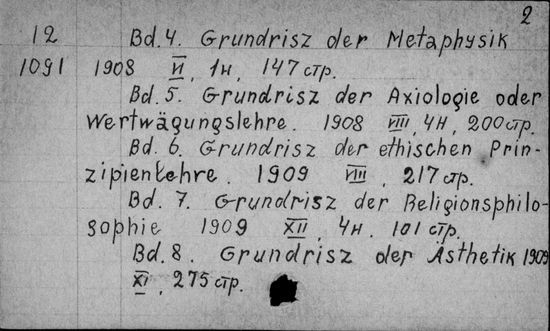 2
12 Bd. 4. Grundrisz der Metaphysik
1091 1908 VI, 1н, 147 стр.
Bd. 5. Grundrisz der Axiologie oder
Wertwägungslehre. 1908 VIII, 4н, 200 стр.
Bd. 6. Grundrisz der ethischen Prin-
zipienlehre. 1909 VIII, 217 стр.
Bd. 7. Grundrisz der Religionsphilo-
sophie 1909 XII, 4н. 101 стр.
Bd. 8. Grundrisz der Ästhetik 1909
XI, 275 стр.